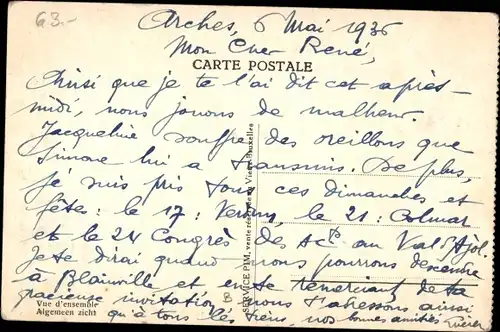 63.-
Arches, 6 Mai 1936
Mon Cher René,
CARTE POSTALE
Ainsi que je te l'ai dit cet après-
midi, nous jouons de malheur.
Jacqueline souffre des oreillons que
Simone lui a transmis. De plus,
je suis pris tous ces dimanches et
fêtes : le 17 : le 21 : Colmar
et le 24 Congrès des au Val d'Ajol.
Je te dirai quand nous pourrons descendre
à Blainville et en te remerciant de ta
gracieuse invitation nous t'adressons ainsi
qu'à tous les tiens, nos bonnes amitiés
Vue d'ensemble
Algemeen zicht
SERVICE PIM, vente réservée au Vieux-Bruxelles